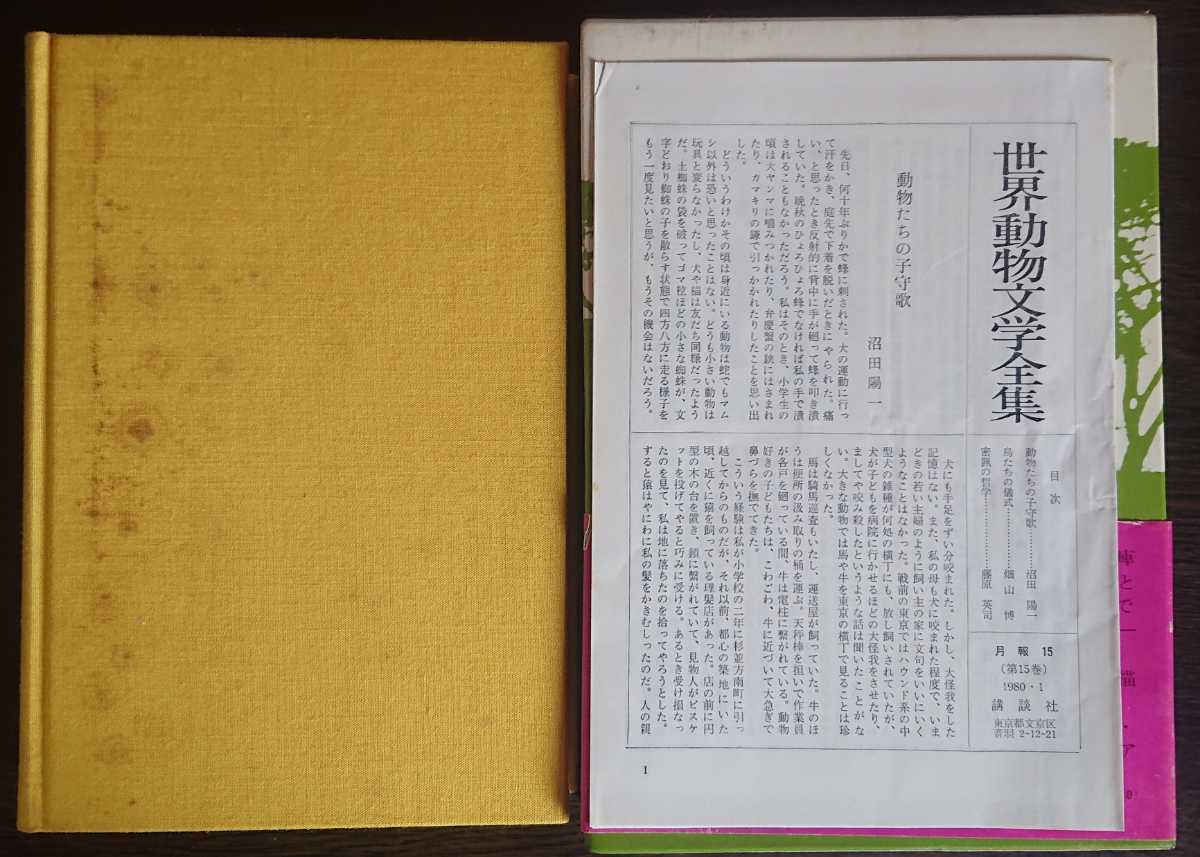 世界動物文学全集
目次
動物たちの子守歌…………沼田陽一
鳥たちの儀式…………畑山博
密猟の哲学…………藤原英司
月報 15
(第15巻)
1980・1
講談社
東京都文京区
音羽 2-12-21
動物たちの子守歌
沼田陽一
先日、何十年ぶりかで蜂に刺された。犬の運動に行っ
て汗をかき、庭先で下着を脱いだときにやられた。痛
い、と思ったとき反射的に背中に手が廻って蜂を叩き潰
していた。晩秋のひょろひょろ蜂でなければ私の手で潰
されることもなかっただろう。私はそのとき、小学生の
頃は大ヤンマに嚙みつかれたり、弁慶蟹の鋏にはさまれ
たり、カマキリの鎌で引っかかれたりしたことを思い出
した。
どういうわけかその頃は身近にいる動物は蛇でもマム
シ以外は恐いと思ったことはない。どうも小さい動物は
玩具と変らなかったし、犬や猫は友だち同様だったよう
だ。土蜘蛛の袋を破ってゴマ粒ほどの小さな蜘蛛が、文
字どおり蜘蛛の子を散らす状態で四方八方に走る様子を
もう一度見たいと思うが、もうその機会はないだろう。
犬にも手足をずい分咬まれた。しかし、大怪我をした
記憶はない。また、私の母も犬に咬まれた程度で、いま
どきの若い主婦のように飼い主の家に文句をいいにいく
ようなことはなかった。戦前の東京ではハウンド系の中
型犬の雑種が何処の横丁にも、放し飼いされていたが、
犬が子どもを病院に行かせるほどの大怪我をさせたり、
ましてや咬み殺したというような話は聞いたことがな
い。大きな動物では馬や牛を東京の横丁で見ることは珍
しくなかった。
馬は騎馬巡査もいたし、運送屋が飼っていた。牛のほ
うは便所の汲み取りの桶を運ぶ。天秤棒を担いで作業員
が各戸を廻っている間、牛は電柱に繋がれている。動物
好きの子どもたちは、こわごわ、牛に近づいて大急ぎで
鼻づらを撫でてきた。
こういう経験は私が小学校の二年に杉並方南町に引っ
越してからのものだが、それ以前、都心の築地にいた
頃、近くに猿を飼っている理髪店があった。店の前に円
型の木の台を置き、鎖に繋がれていて、見物人がビスケ
ットを投げてやると巧みに受ける。あるとき受け損なっ
たのを見て、私は地に落ちたのを拾ってやろうとした。
すると猿はやにわに私の髪をかきむしったのだ。人の親
1
庫とで一
猫
・ア